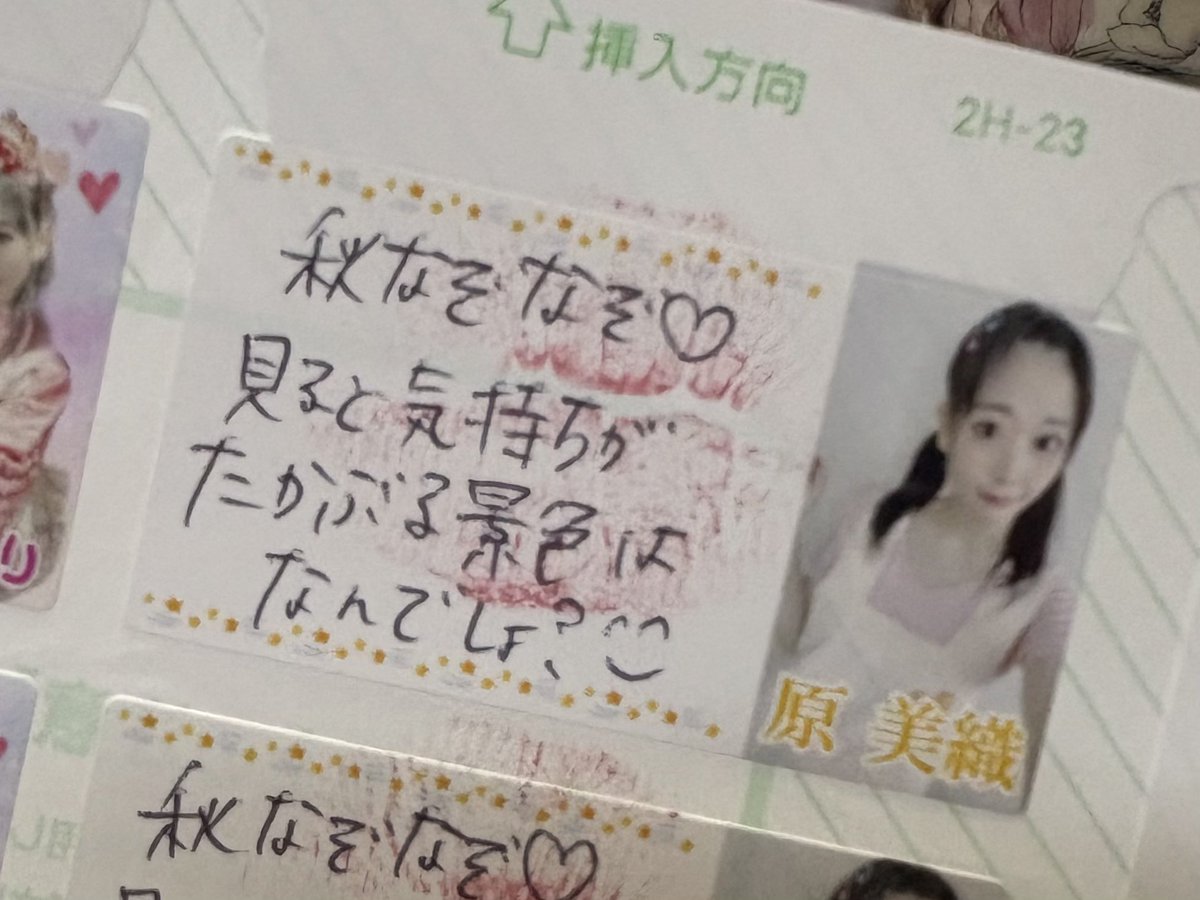 挿入方向
2H-23
秋なぞなぞ♡
見ると気持ちが
たかぶる景色は
なんでしょ?
原 美織
り
秋なぞなぞ♡